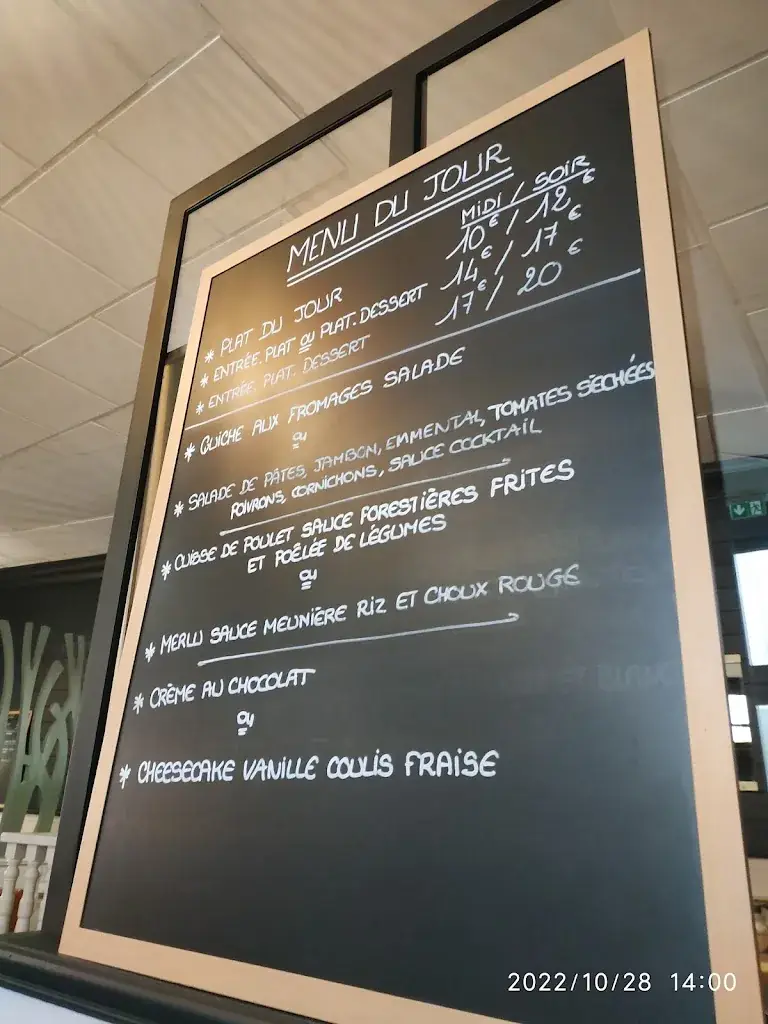 MENU DU JOUR
MIDI / SOIR
* PLAT DU JOUR 10€ / 12€
* ENTRÉE. PLAT ou PLAT. DESSERT 14€ / 17€
* ENTRÉE. PLAT. DESSERT 17€ / 20€
* QUICHE AUX FROMAGES SALADE
ou
* SALADE DE PÂTES, JAMBON, EMMENTAL, TOMATES SÉCHÉES
POIVRONS, CORNICHONS, SAUCE COCKTAIL
* CUISSE DE POULET SAUCE FORESTIÈRES FRITES
ET POÊLÉE DE LÉGUMES
ou
* MERLU SAUCE MEUNIÈRE RIZ ET CHOUX ROUGE
* CRÈME AU CHOCOLAT
ou
* CHEESECAKE VANILLE COULIS FRAISE
2022/10/28 14:00